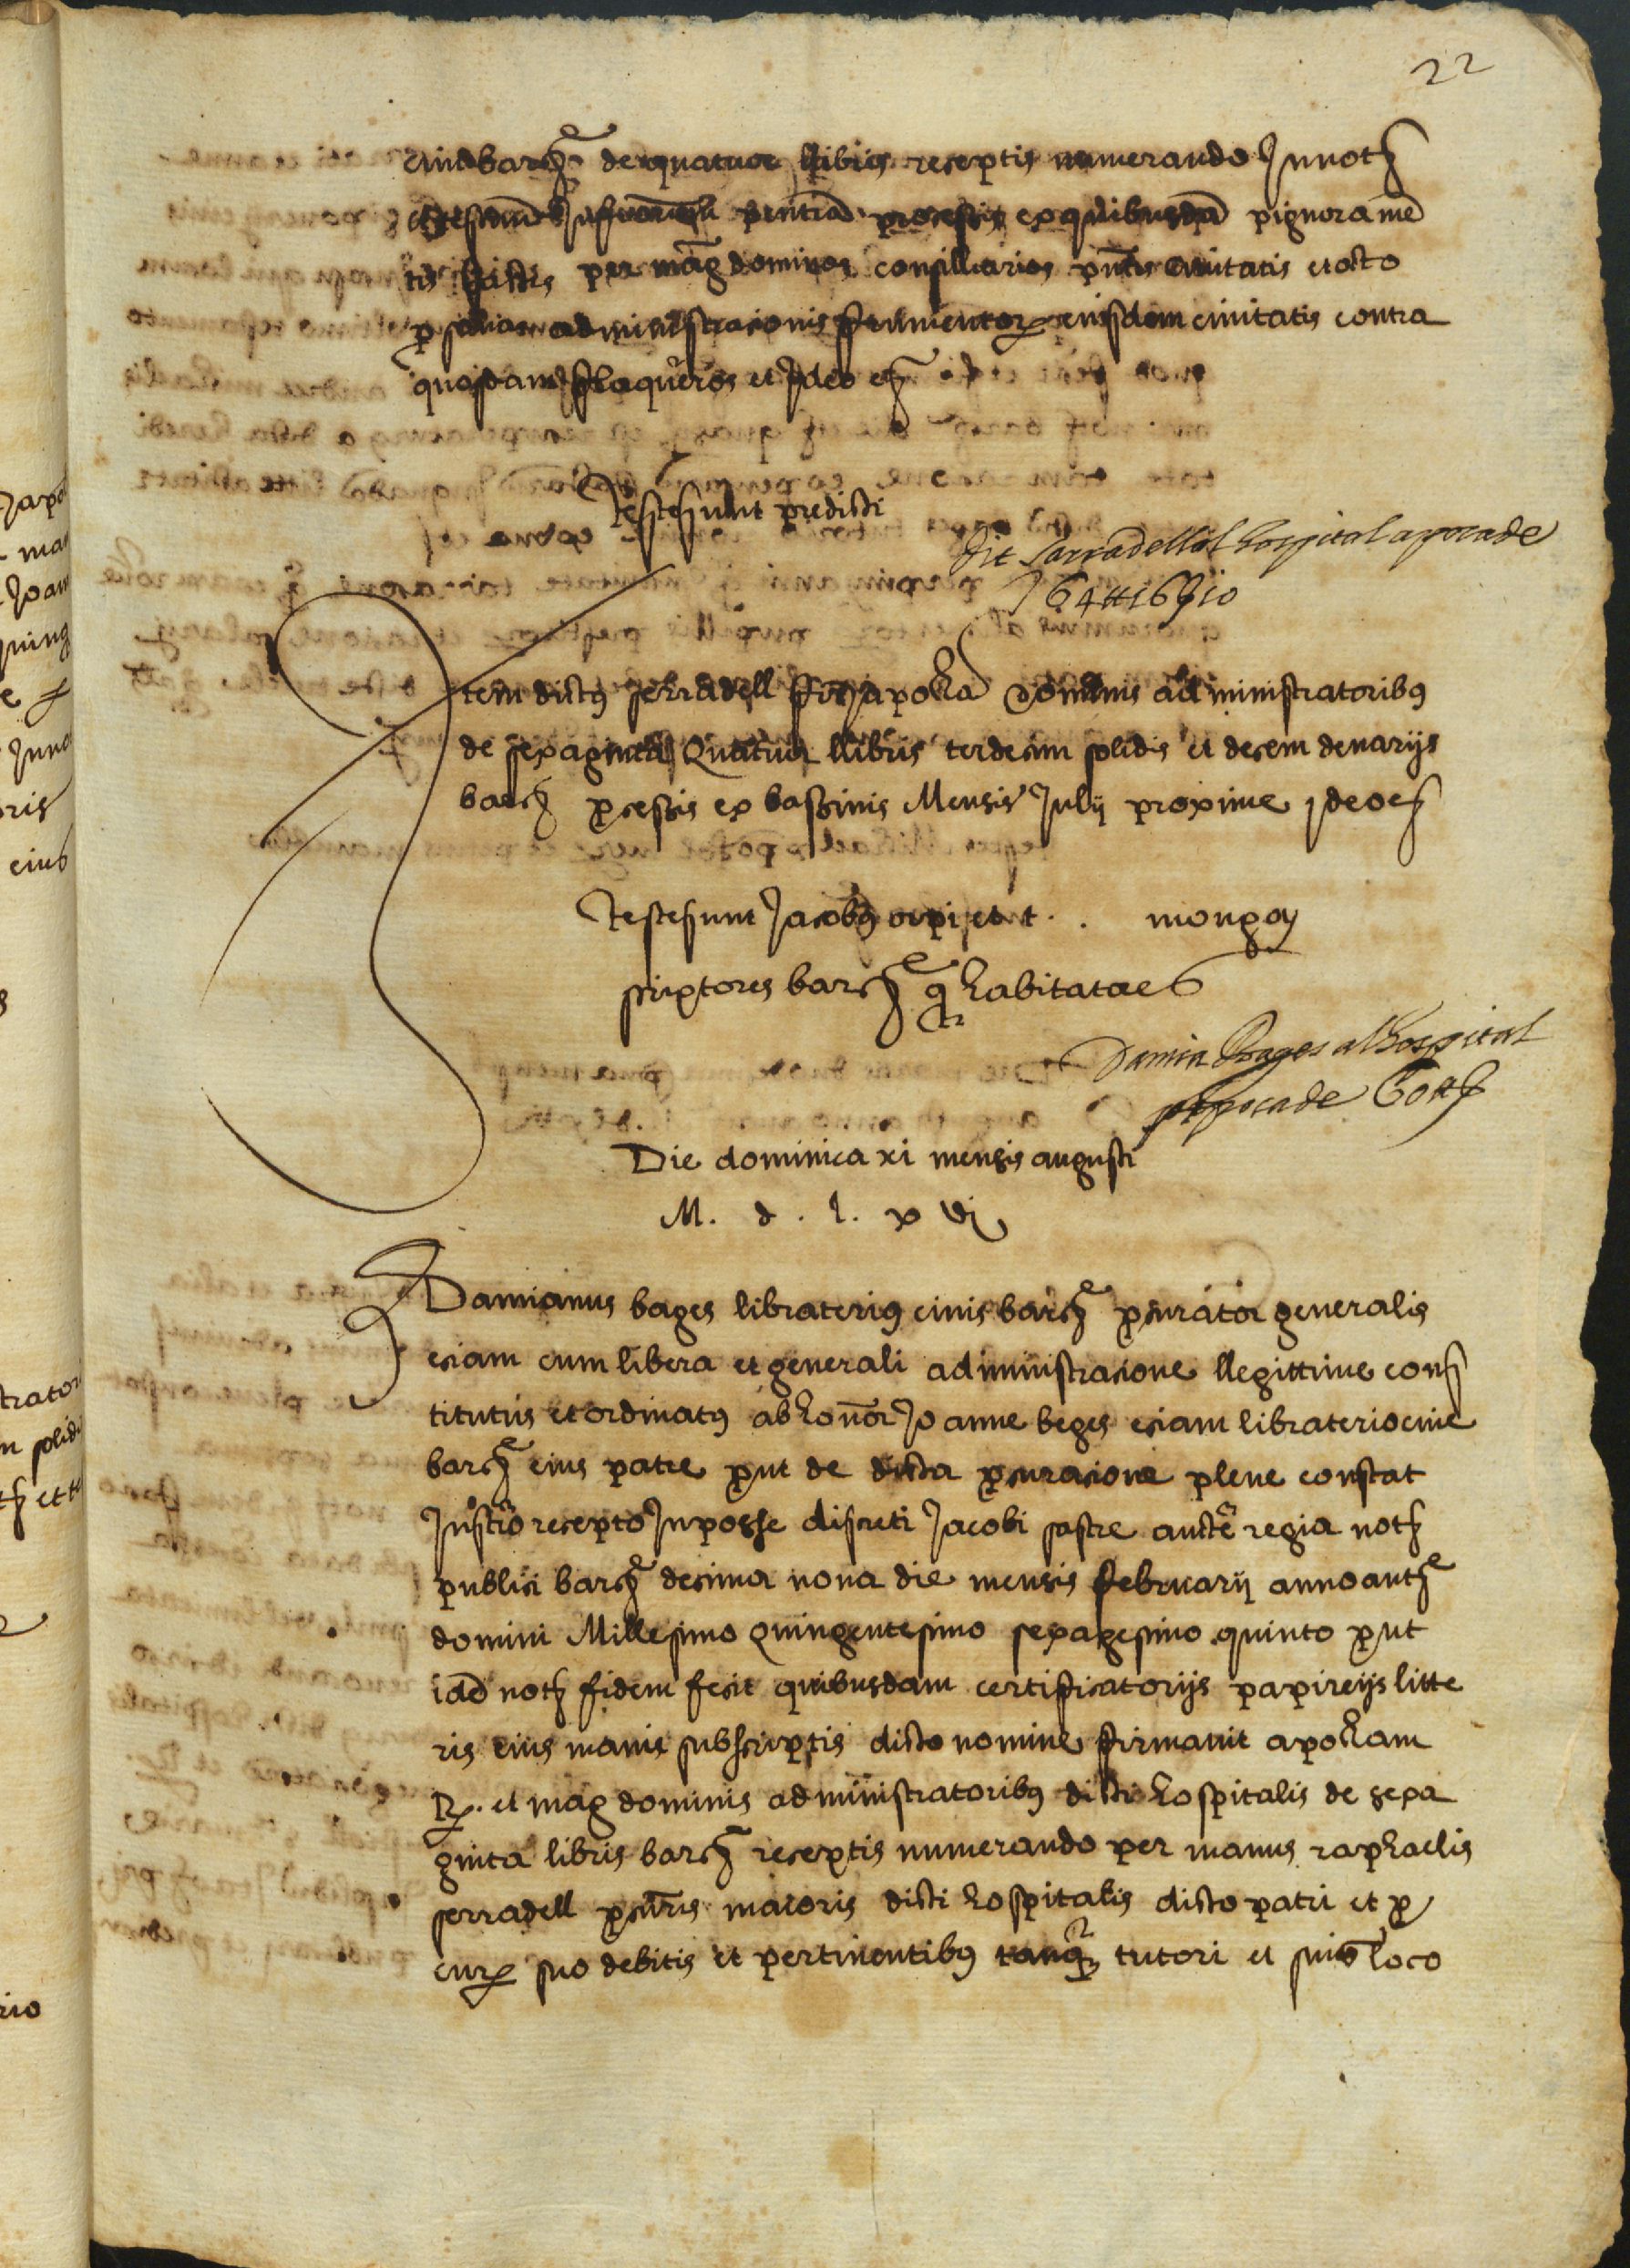 22
civis barcȝ de quatuor libris receptis numerando In notȝ
et testium Infrorum pntia processis ex quibusda pignorame
tis factis per mag dominos consiliarios pntis civitatis et octo
p administracionis frumentor eiusdem civitatis contra
quosdam flaquers et Ideo etȝ
Testes sunt predicti
dit Sarradell al hospital apoca de
64 tt 1 β 10
Item dictus serradell fir apoka dominis administratoribus
de sexaginta Quatuor llibris terdecim solidis et decem denarijs
barcȝ pcessis ex bascinis Mensis Julij proxime Ideo eȝ
Testes sunt Jacobus orpi et t . . mongay
scriptores barcȝ habitatores
Damia Bages al hospital
apoca de 60 tt β
Die dominica xi mensis augusti
M. d. l. x vi
Damianus bages libraterius civis barcȝ pcurator generalis
eciam cum libera et generali administracione llegittime cons
titutus et ordinatus ab honor Joanne beges eciam libraterio cive
barcȝ eius patre put de dicta pcuracione plene constat
Instro recepto In posse discreti Jacobi sastre aucte regia notȝ
publici barcȝ decima nona die mensis februarij anno antȝ
domini Millesimo Quingentesimo sexagesimo quinto put
id notȝ fidem fecit quibusdam certificatorijs papireijs litte
ris eius manu subscriptis dicto nomine firmavit apokam
R. et mag dominis administratoribus dicti hospitalis de sexa
ginta libris barcȝ receptis numerando per manus raphaelis
serradell pcuris maioris dicti hospitalis dicto patri et p
cur suo debitis et pertinentibus tanq tutori et suo loco